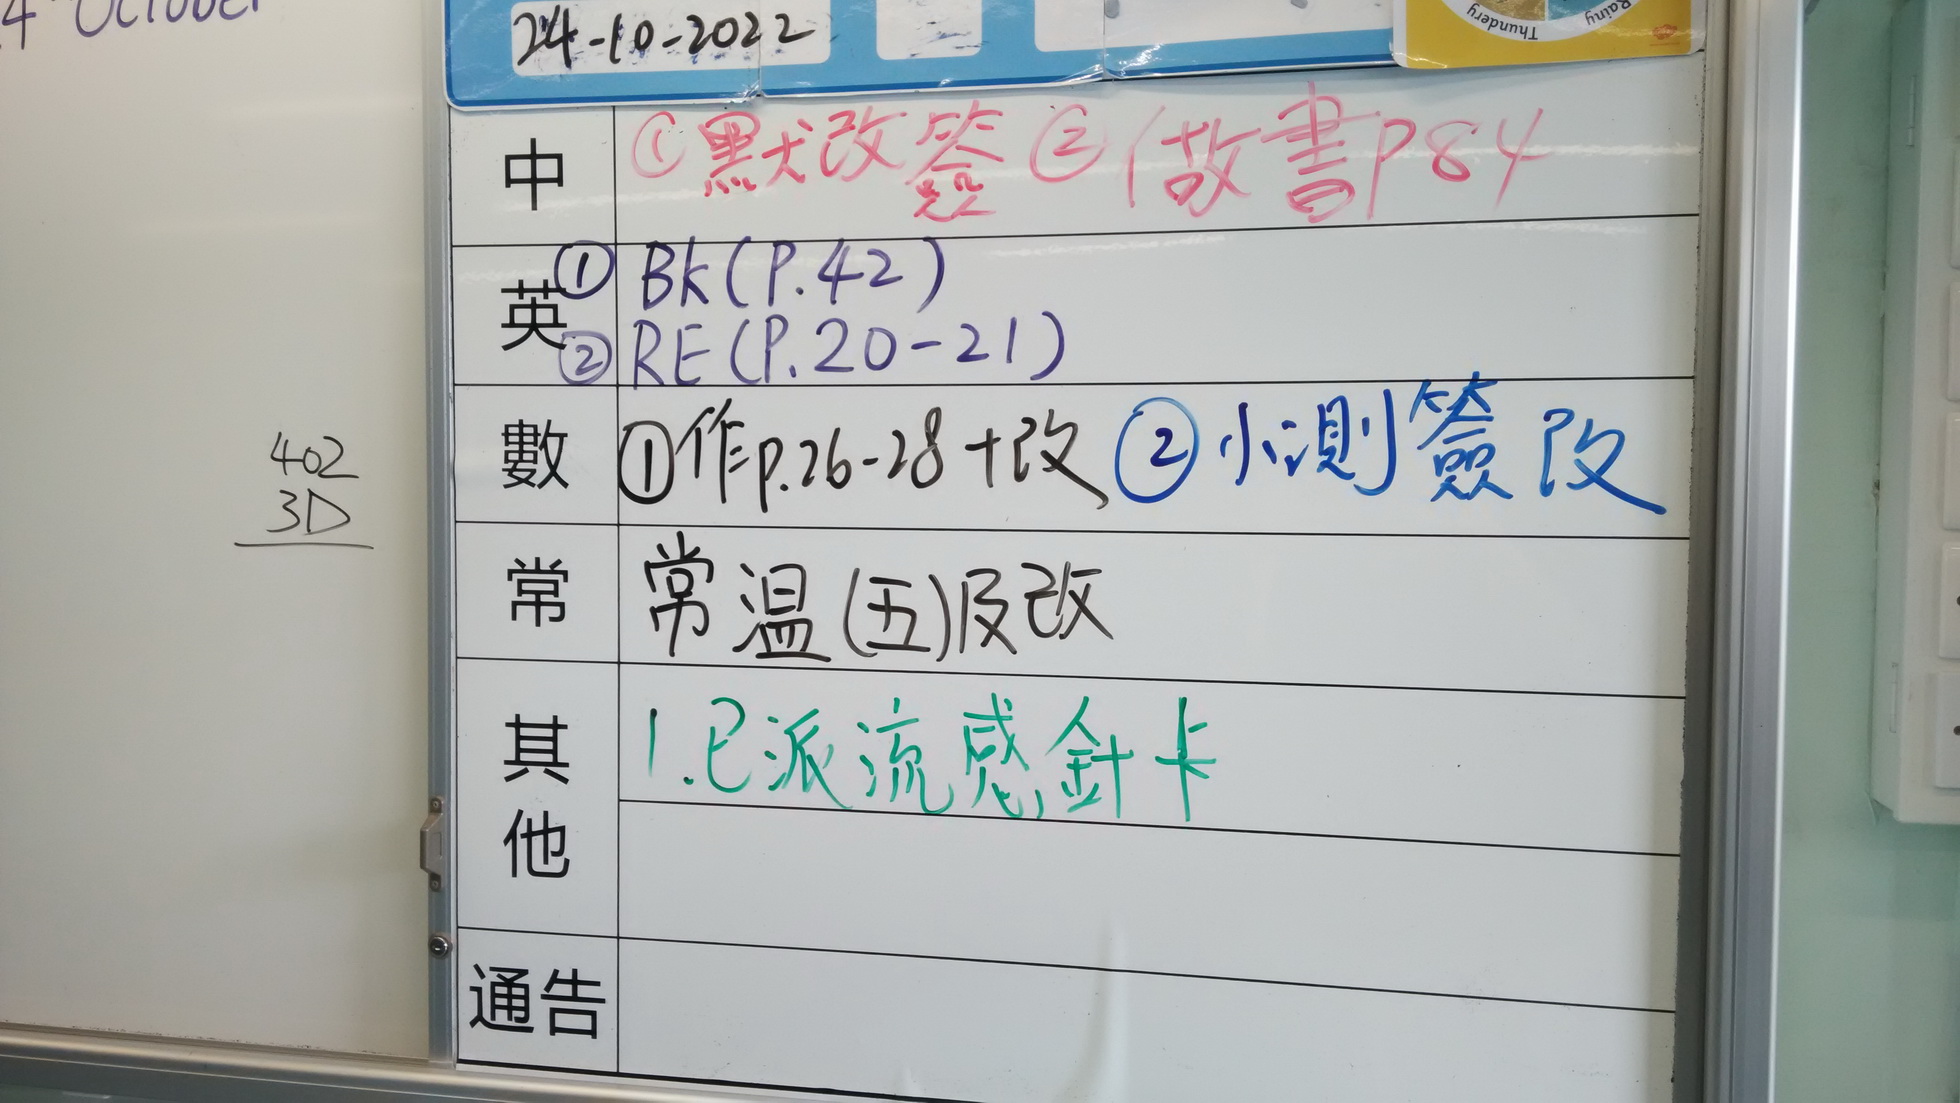 4 October
24-10-2022
Thundery
Rainy
中 ①默改簽 ②做書P84
英 ① BK(P.42)
② RE(P.20-21)
數 ①作p.26-28+改 ②小測簽改
常 常温(五)及改
其他 1.已派流感針卡
通告
402
3D